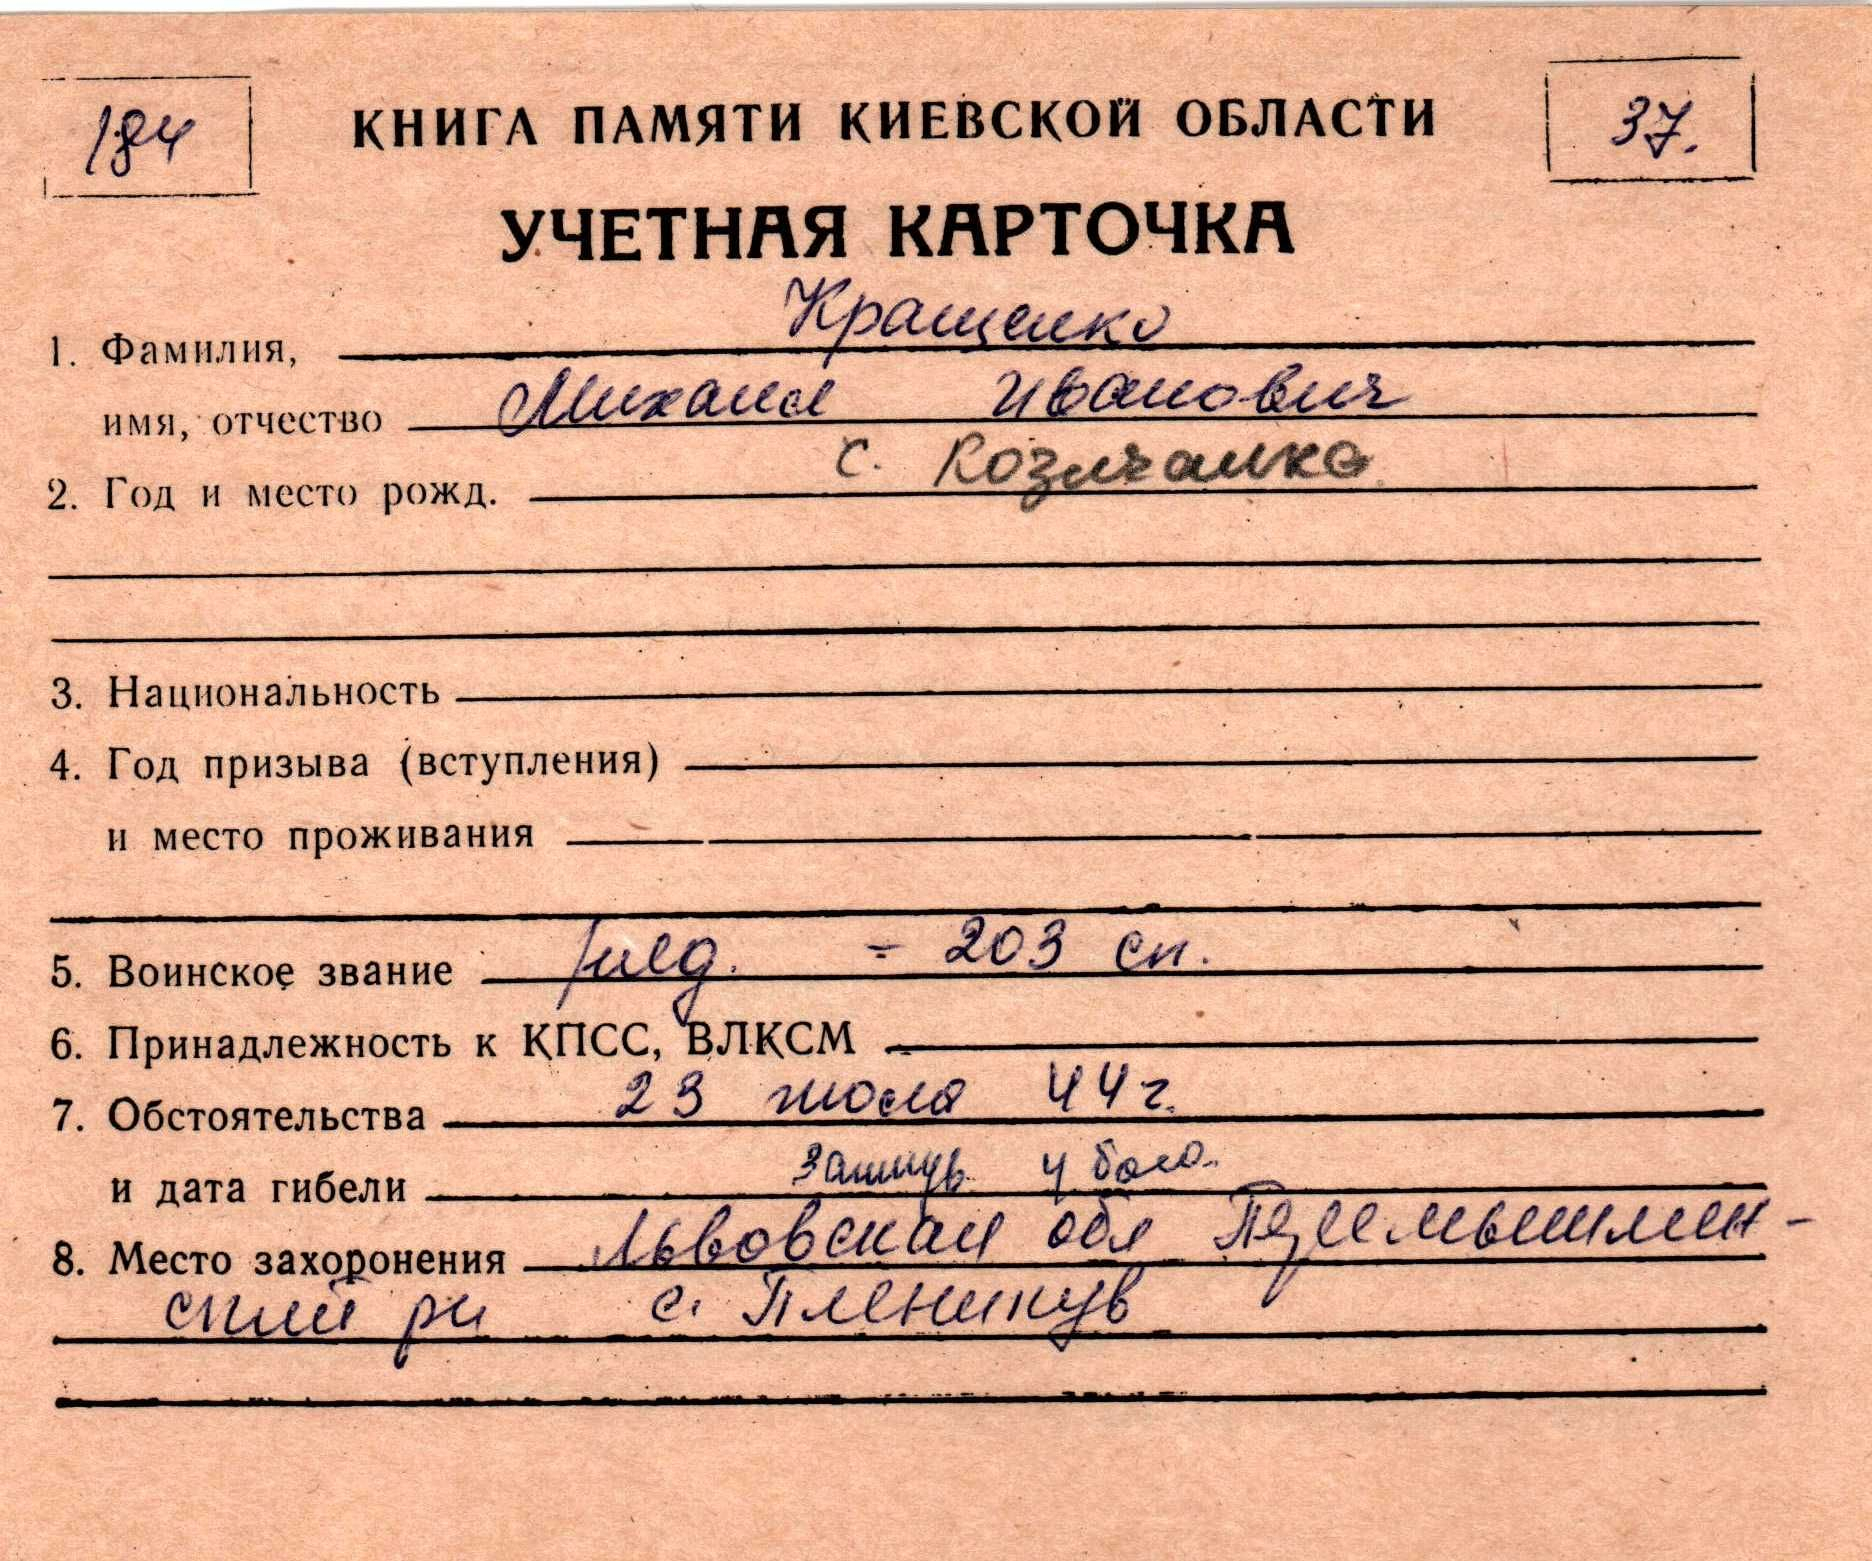 184
КНИГА ПАМЯТИ КИЕВСКОЙ ОБЛАСТИ
37.
УЧЕТНАЯ КАРТОЧКА
1. Фамилия, Кращенко
имя, отчество Михаил Иванович
2. Год и место рожд. с. Козичанка
3. Национальность
4. Год призыва (вступления)
и место проживания
5. Воинское звание - 203 сп.
6. Принадлежность к КПСС, ВЛКСМ
7. Обстоятельства 23 июля 44 г.
и дата гибели загинув у бою.
8. Место захоронения Львовская обл Перемышлян-
ский рн с. Пленикув